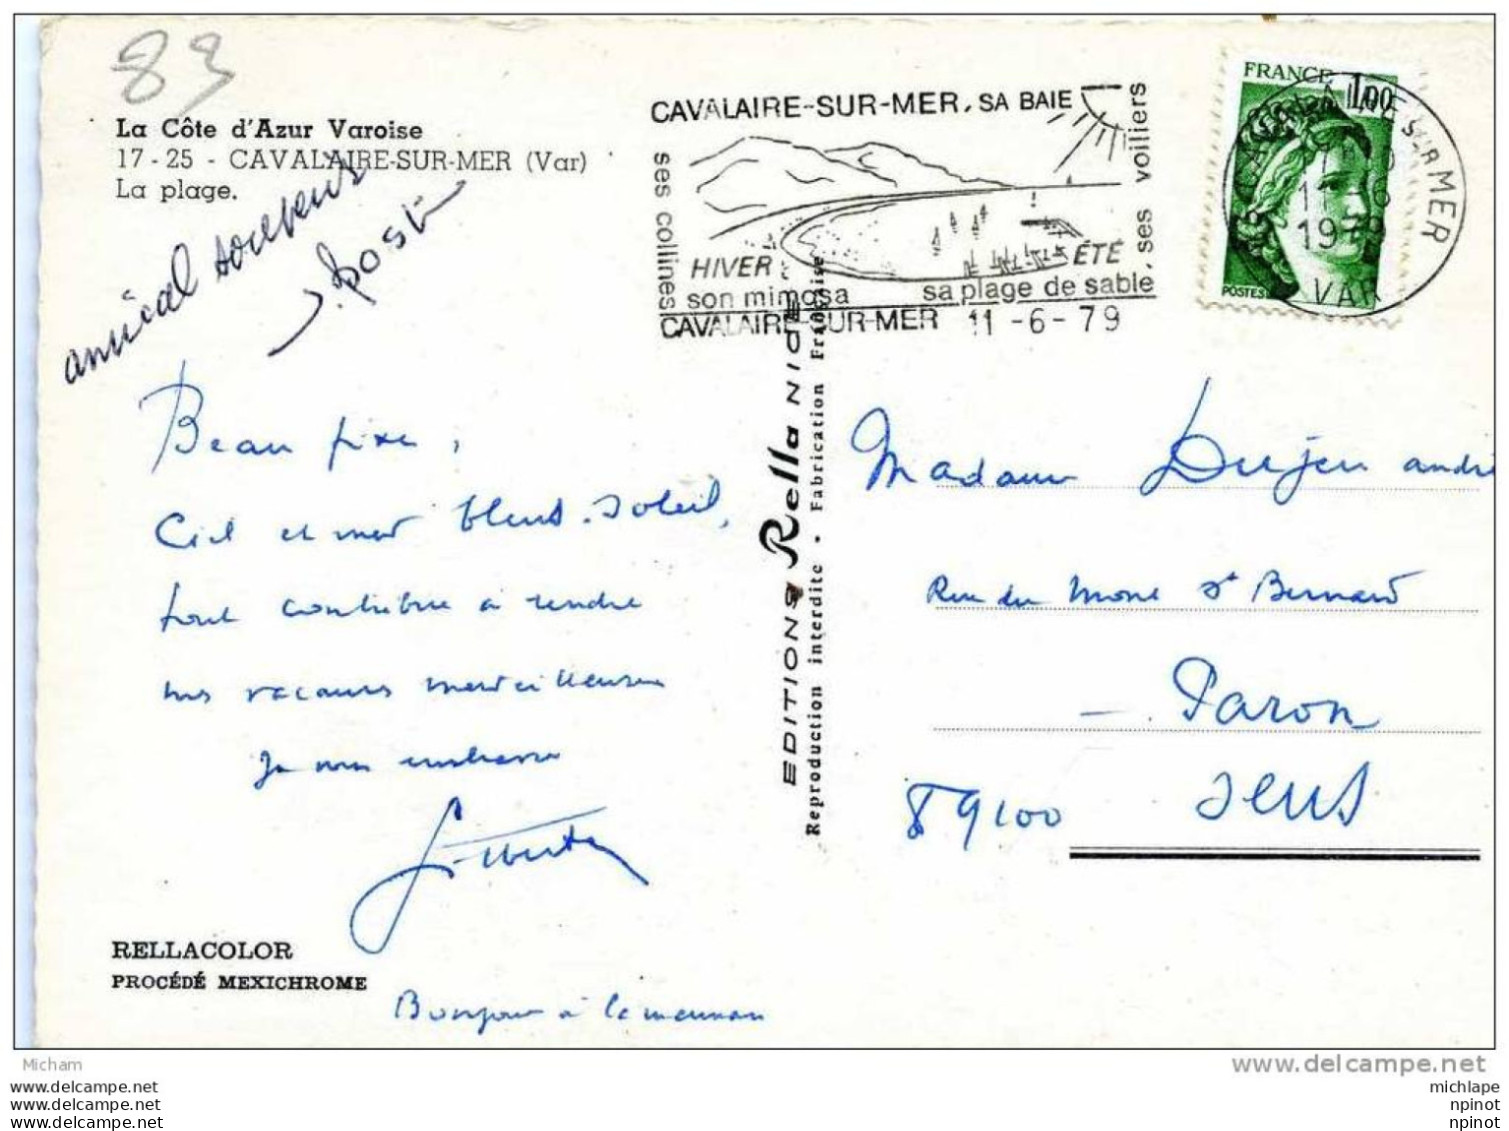 83
La Côte d'Azur Varoise
17-25 - CAVALAIRE-SUR-MER (Var)
La plage.
amical souvenir
Beau fixe,
Ciel et mer bleus. Soleil,
tout contribue à rendre
nos vacances merveilleuses
Je vous embrasse
RELLACOLOR
PROCÉDÉ MEXICHROME
Bonjour à la maman
CAVALAIRE-SUR-MER, SA BAIE
ses collines
ses voiliers
HIVER
son mimosa
ÉTÉ
sa plage de sable
CAVALAIRE-SUR-MER 11-6-79
FRANCE 1,00
POSTES
CAVALAIRE SUR MER
1979
VAR
EDITIONS Rella NICE
Reproduction interdite • Fabrication Française
Madame Dujeu andré
Rue du Mont St Bernard
- Paron
89100 Sens
Micham
delcampe.net
michlape
npinot
npinot
www.delcampe.net
www.delcampe.net
www.delcampe.net